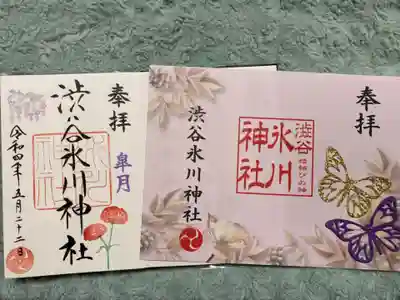 奉拝
皐月
渋谷氷川神社
令和四年五月二十二日
奉拝
渋谷氷川神社
渋谷
氷川
神社
縁結びの神